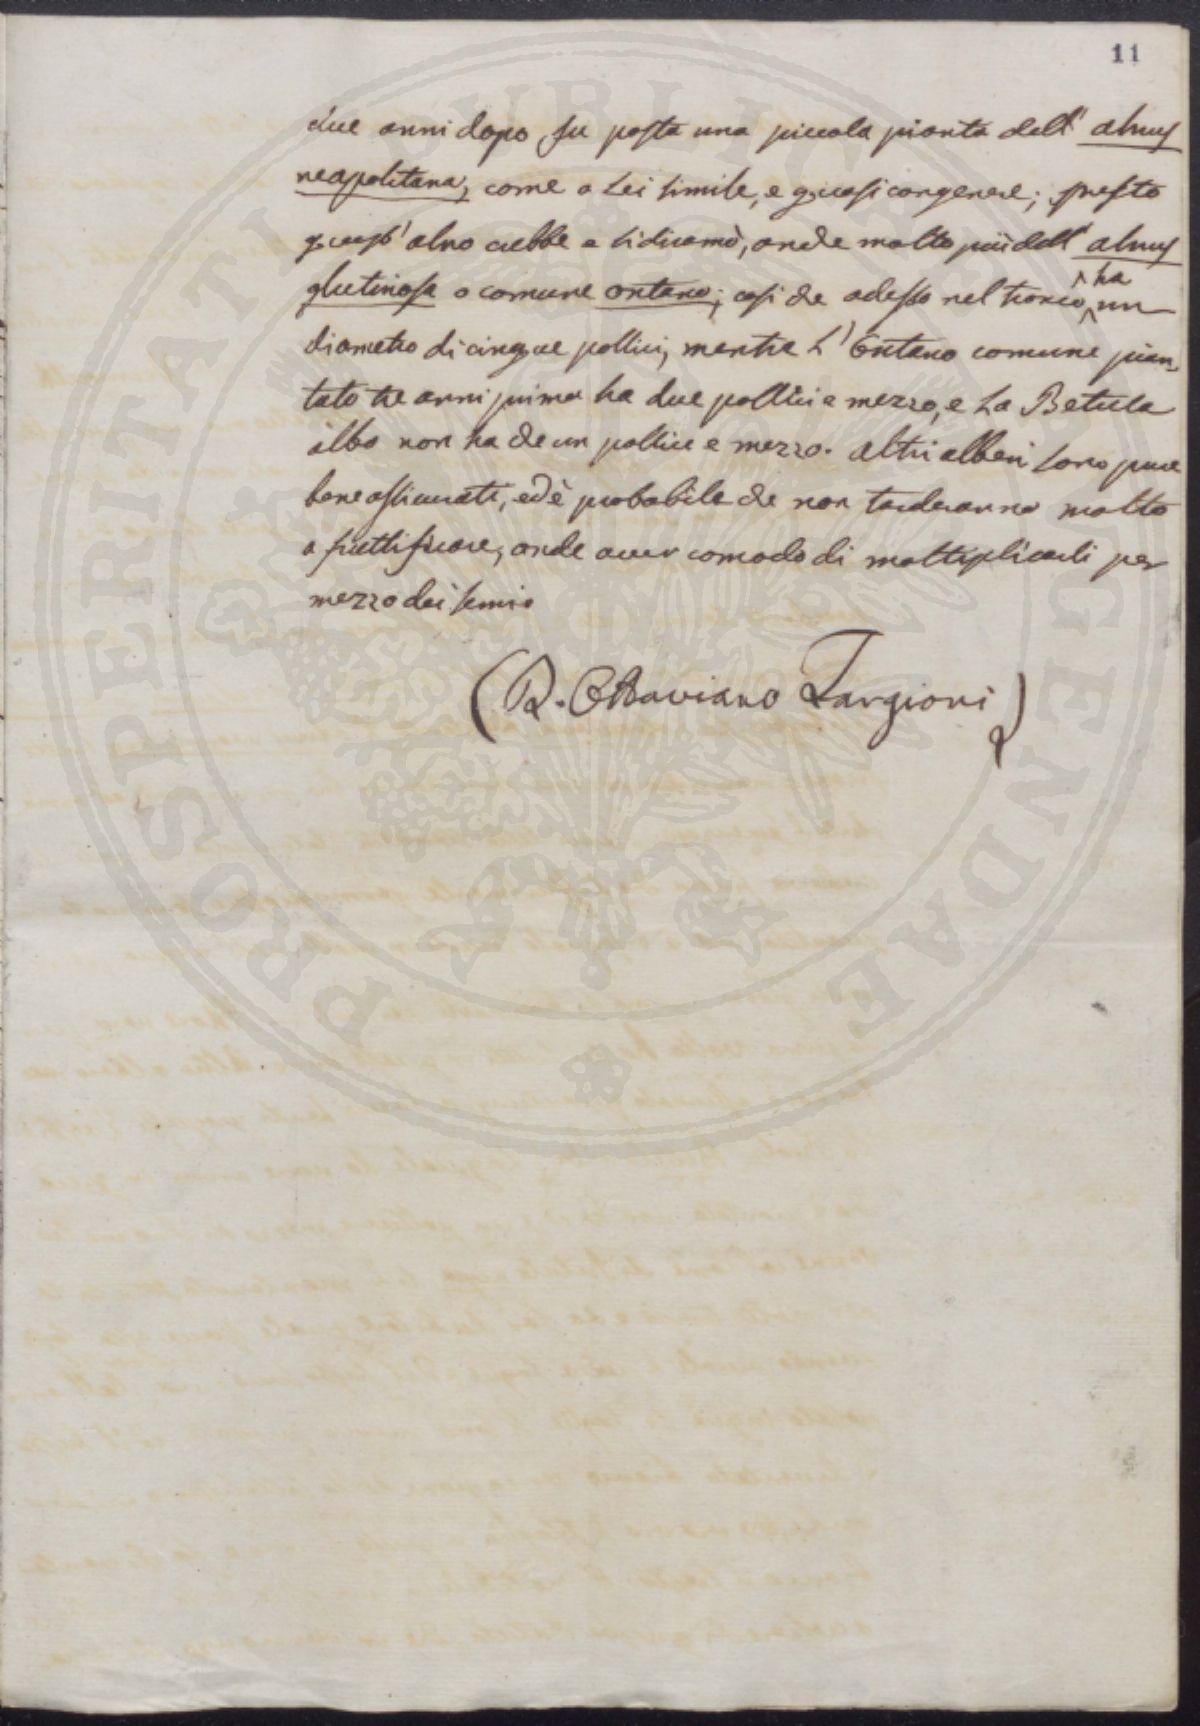 11
due anni dopo fu posta una piccola pianta dell' alnus
neapolitana, come a Lei simile, e quasi congenere; presto
quest' alno crebbe e si diramò, anche molto più dell' alnus
glutinosa o comune ontano; così che adesso nel tronco ha un
diametro di cinque pollici, mentre L' Ontano comune pian-
tato tre anni prima ha due pollici e mezzo, e La Betula
alba non ha che un pollice e mezzo. altri alberi sono pure
bene assicurati, ed è probabile che non tarderanno molto
a fruttificare, onde aver comodo di moltiplicarli per
mezzo dei semi.
(D. Ottaviano Targioni)
PROSPERITATI PUBLICAE AUGENDAE